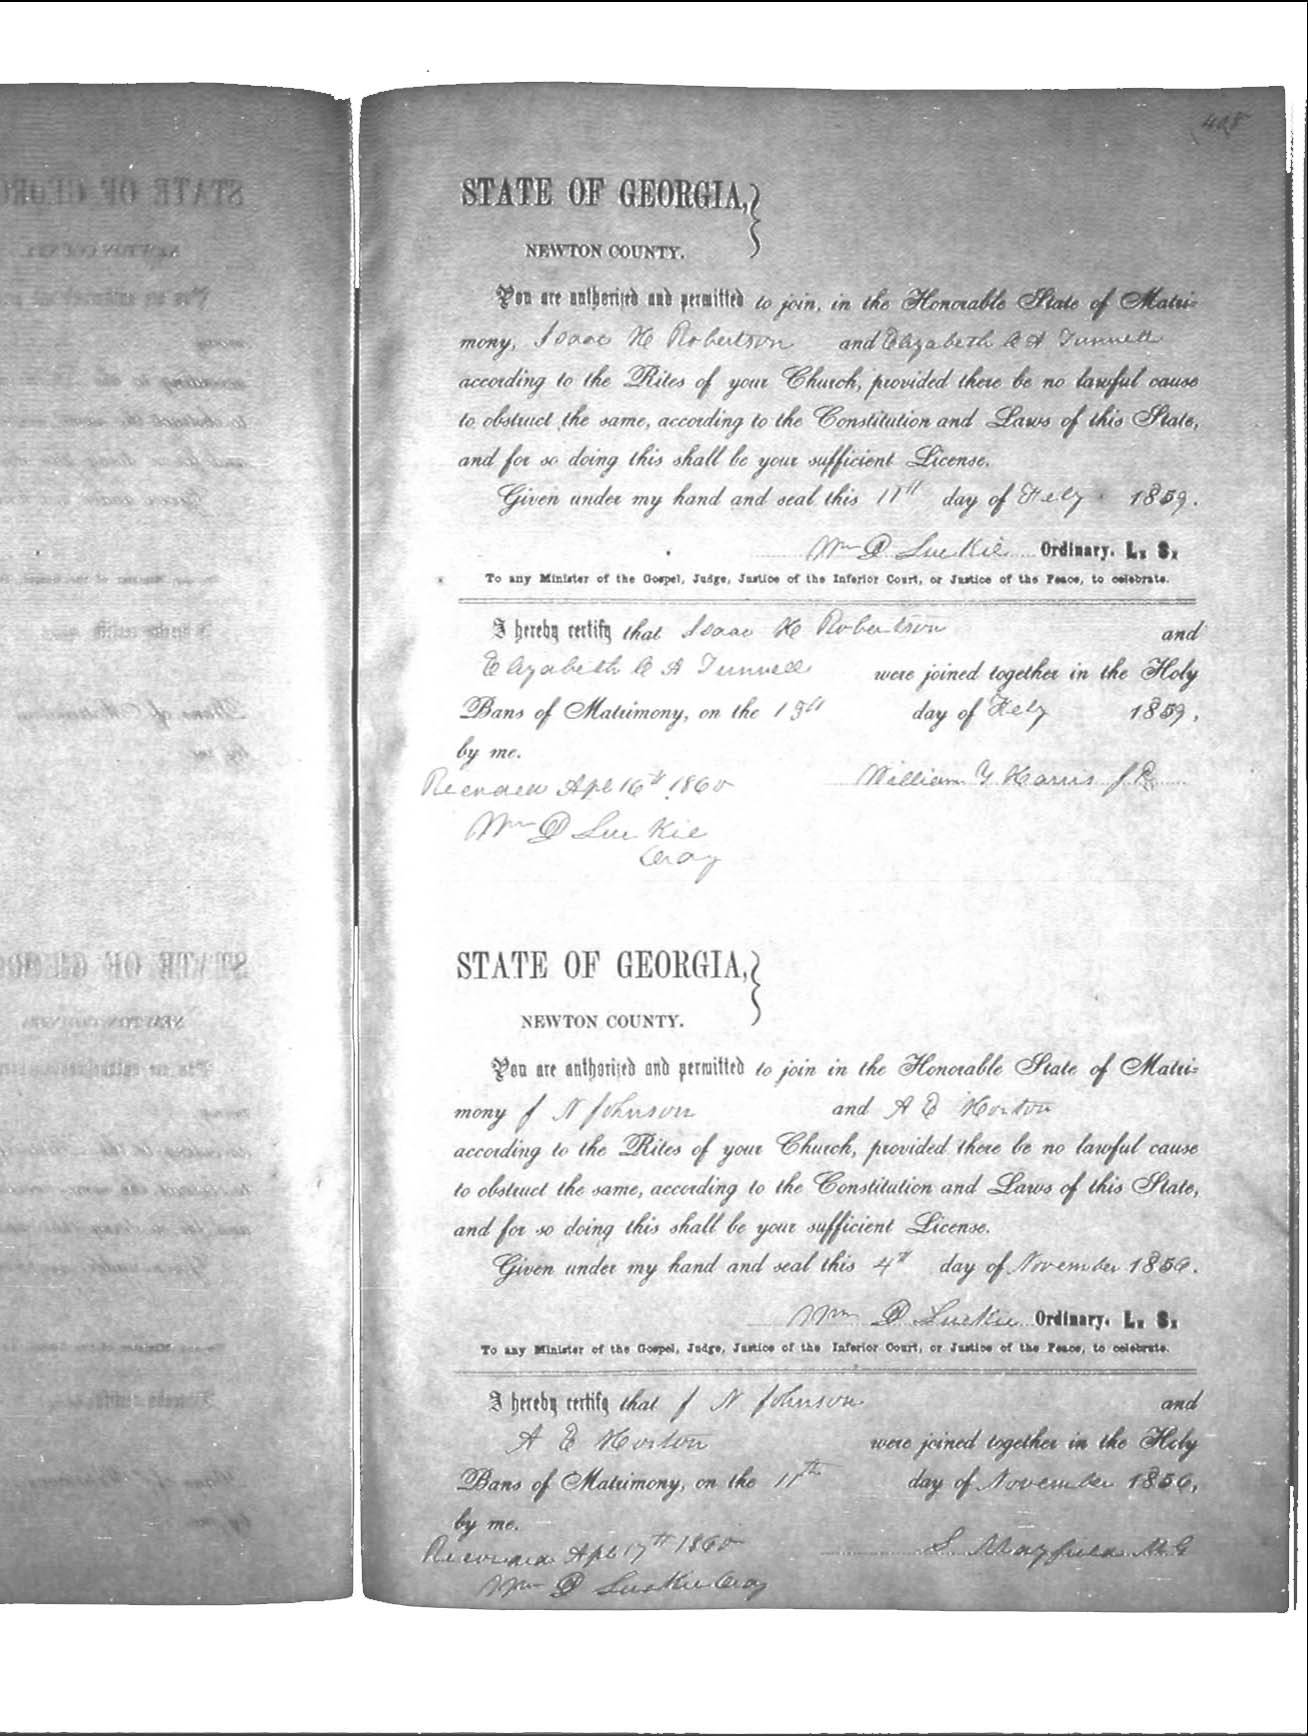 408
STATE OF GEORGIA,
NEWTON COUNTY.
You are authorized and permitted to join, in the Honorable State of Matri-
mony, Isaac H Robertson and Elizabeth C A Tunnell
according to the Rites of your Church, provided there be no lawful cause
to obstruct the same, according to the Constitution and Laws of this State,
and for so doing this shall be your sufficient License.
Given under my hand and seal this 11th day of Feby 1859.
Wm D Luckie Ordinary. L. S.
To any Minister of the Gospel, Judge, Justice of the Inferior Court, or Justice of the Peace, to celebrate.
I hereby certify that Isaac H Robertson and
Elizabeth C A Tunnell were joined together in the Holy
Bans of Matrimony, on the 13th day of Feby 1859,
by me.
William Y Harris J P
Recorded Apl 16th 1860
Wm D Luckie
Ordy
STATE OF GEORGIA,
NEWTON COUNTY.
You are authorized and permitted to join in the Honorable State of Matri-
mony J N Johnson and A E Horton
according to the Rites of your Church, provided there be no lawful cause
to obstruct the same, according to the Constitution and Laws of this State,
and for so doing this shall be your sufficient License.
Given under my hand and seal this 4th day of November 1856.
Wm D Luckie Ordinary. L. S.
To any Minister of the Gospel, Judge, Justice of the Inferior Court, or Justice of the Peace, to celebrate.
I hereby certify that J N Johnson and
A E Horton were joined together in the Holy
Bans of Matrimony, on the 11th day of November 1856,
by me.
S. Mayfield M G
Recorded Apl 17th 1860
Wm D Luckie Ordy